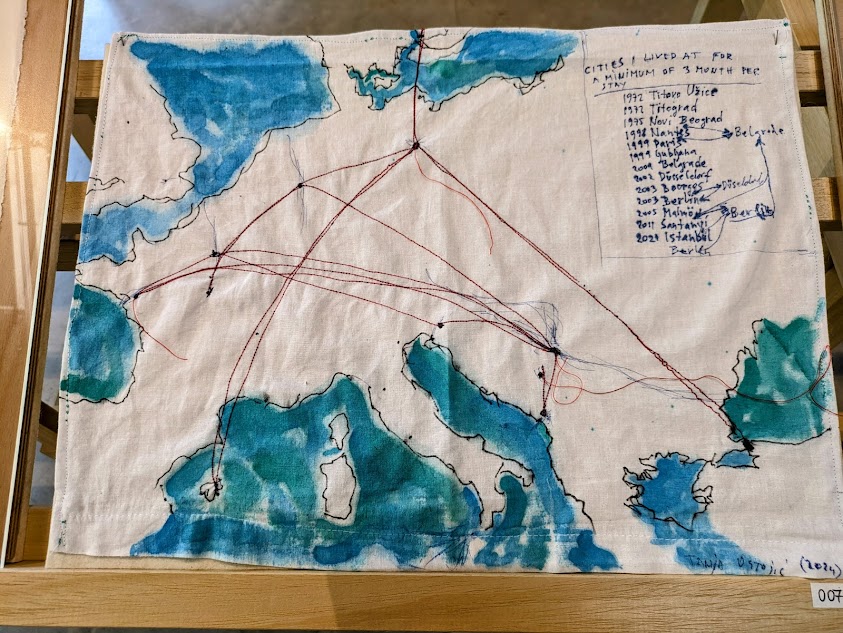 CITIES I LIVED AT FOR
A MINIMUM OF 3 MONTH PER
STAY
1972 Titovo Užice
1972 Titograd
1975 Novi Beograd
1998 Nantes
Belgrade
1999 Paris
1999 Ljubljana
2001 Belgrade
2002 Düsseldorf
2003 Bourges
Düsseldorf
2003 Berlin
2005 Malmö
Berlin
2011 Santanyi
2021 Istanbul
Berlin
Tanja Ostojić (2024)
007